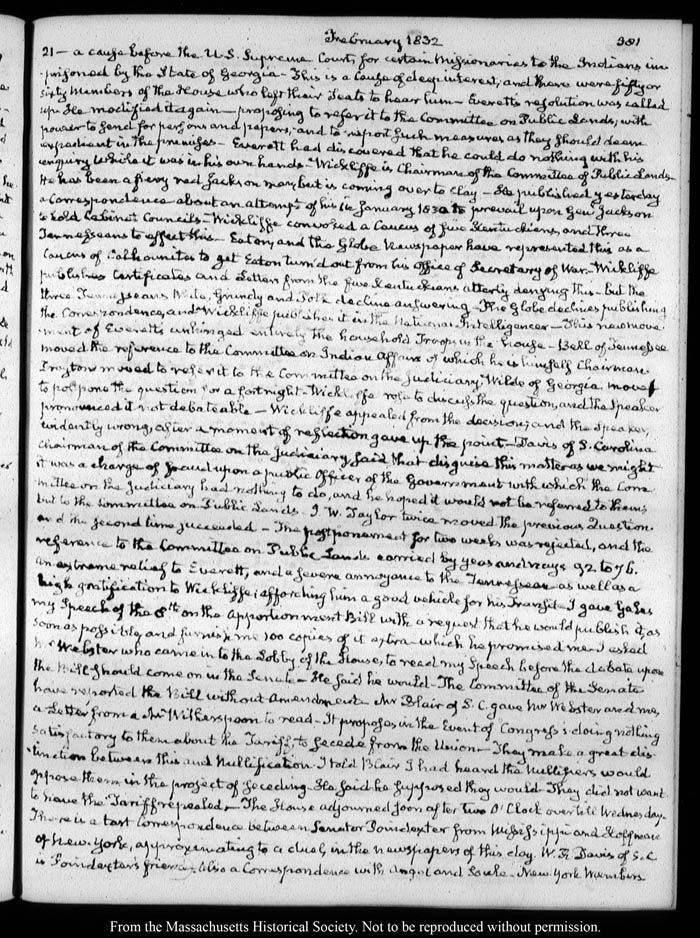 February 1832
381
21 — a cause before the U.S. Supreme Court, for certain Missionaries to the Indians im-
prisoned by the State of Georgia — This is a Cause of deep interest, and there were fifty or
sixty Members of the House who left their Seats to hear him — Everett's resolution was called
up. He modified it again — proposing to refer it to the Committee on Public Lands, with
power to send for persons and papers, and to report such measures as they should deem
expedient in the premises — Everett had discovered that he could do nothing with his
enquiry while it was in his own hands — Wickliffe is Chairman of the Committee of Public Lands
He has been a fiery red Jackson man, but is coming over to Clay — He published yesterday
a Correspondence about an attempt of his in January 1830 to prevail upon Genl. Jackson
to hold Cabinet Councils — Wickliffe convoked a Caucus of five Kentuckians, and three
Tennesseans to effect this — Eaton, and the Globe Newspaper have represented this as a
Caucus of Calhounites to get Eaton turn'd out from his office of Secretary of War — Wickliffe
publishes Certificates and Letters from the five Kentuckians utterly denying this — but the
three Tennesseans White, Grundy and Polk decline answering — The Globe declines publishing
the Correspondence, and Wickliffe publishes it in the National Intelligencer — This new move-
ment of Everett's unhinged entirely the household Troops in the House — Bell of Tennessee
moved the reference to the Committee on Indian Affairs of which he is himself Chairman
Drayton moved to refer it to the Committee on the Judiciary; Wilde of Georgia moved
to postpone the question for a fortnight — Wickliffe rose to discuss the question, and the Speaker
pronounced it not debateable — Wickliffe appealed from the decision; and the Speaker,
evidently wrong, after a moment of reflection gave up the point — Davis of S. Carolina
Chairman of the Committee on the Judiciary, said that disguise this matter as we might
it was a charge of fraud upon a public Officer of the Government with which the Com-
mittee on the Judiciary had nothing to do, and he hoped it would not be referred to them;
but to the Committee on Public Lands. J. W. Taylor twice moved the previous Question
and the second time succeeded — The postponement for two weeks was rejected, and the
reference to the Committee on Public Lands carried by yeas and nays 92 to 76.
an extreme relief to Everett, and a severe annoyance to the Tennesseans as well as a
high gratification to Wickliffe; affording him a good vehicle for his Transit — I gave Gales
my Speech of the 8th. on the Apportionment Bill with a request that he would publish it, as
soon as possible, and furnish me 100 copies of it extra — which he promised me. I asked
Mr Webster who came in to the Lobby of the House, to read my Speech before the debate upon
the Bill should come on in the Senate — He said he would — The Committee of the Senate
have reported the Bill without Amendment. Mr Blair of S.C. gave Mr Webster and me,
a Letter from a Mr Witherspoon to read — It proposes in the Event of Congress's doing nothing
satisfactory to them about the Tariff, to secede from the Union — They make a great dis-
tinction between this and Nullification. I told Blair I had heard the Nullifiers would
oppose them in the project of seceding. He said he supposed they would. They did not want
to have the Tariff repealed — The House adjourned soon after two O'Clock over till Wednesday.
There is a tart Correspondence between Senator Poindexter from Mississippi and Hoffman
of New-York, approximating to a duel, in the newspapers of this day. W. R. Davis of S.C.
is Poindexter's friend — Also a Correspondence with Angel and Soule — New York Members
From the Massachusetts Historical Society. Not to be reproduced without permission.